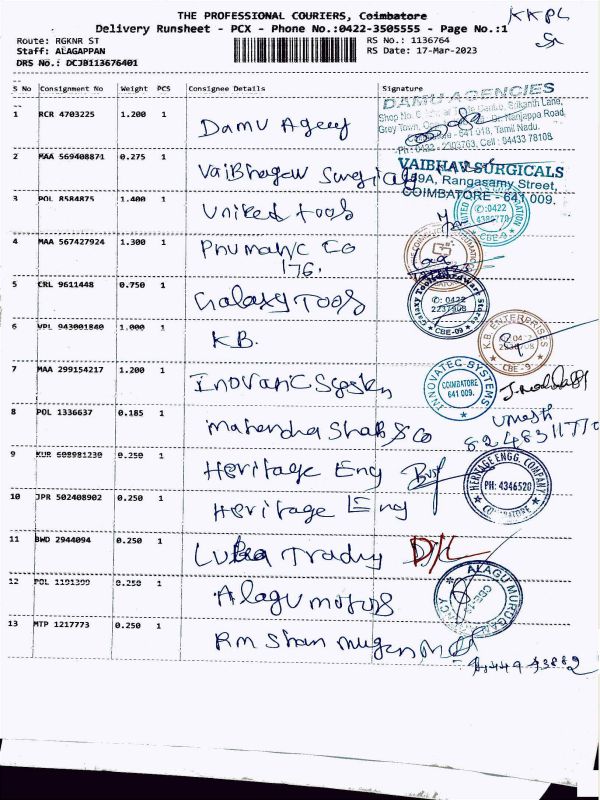 THE PROFESSIONAL COURIERS, Coimbatore
KKPL
Delivery Runsheet - PCX - Phone No.:0422-3505555 - Page No.:1
Route: RGKNR ST
RS No.: 1136764
Staff: ALAGAPPAN
RS Date: 17-Mar-2023
DRS No.: DCJB113676401
S No Consignment No Weight PCS Consignee Details Signature
1 RCR 4703225 1.200 1 Damu Agency
DAMU AGENCIES
Grey Town,
641 018, Tamil Nadu.
Cell : 04433 78108
2 MAA 569408871 0.275 1 Vaibhagav Surgicals
VAIBHAV SURGICALS
Rangasamy Street,
COIMBATORE - 641 009.
3 POL 8584875 1.400 1 United tools
✆: 0422
CBE-9
4 MAA 567427924 1.300 1 Pnumatic Co
176.
5 CRL 9611448 0.750 1 Galaxy Tools
Galaxy Tools Hardware Stores
✆: 0422
2237908
CBE-09
6 VPL 943001840 1.000 1 K.B.
K.B. ENTERPRISES
CBE - 9
7 MAA 299154217 1.200 1 Inovatic System
INNOVATEC SYSTEMS
COIMBATORE
641 009.
8 POL 1336637 0.185 1 Mahendra Shab & Co
Umesh
9 KUR 608981230 0.250 1 Heritage Eng
HERITAGE ENGG. COMPANY
PH: 4346520
COIMBATORE
10 JPR 502408902 0.250 1 Heritage Eng
11 BWD 2944094 0.250 1 Lubea Trading D/L
12 POL 1191399 0.250 1 Alagu motors
ALAGU MURUGAN
13 MTP 1217773 0.250 1 Rm Shanmugam